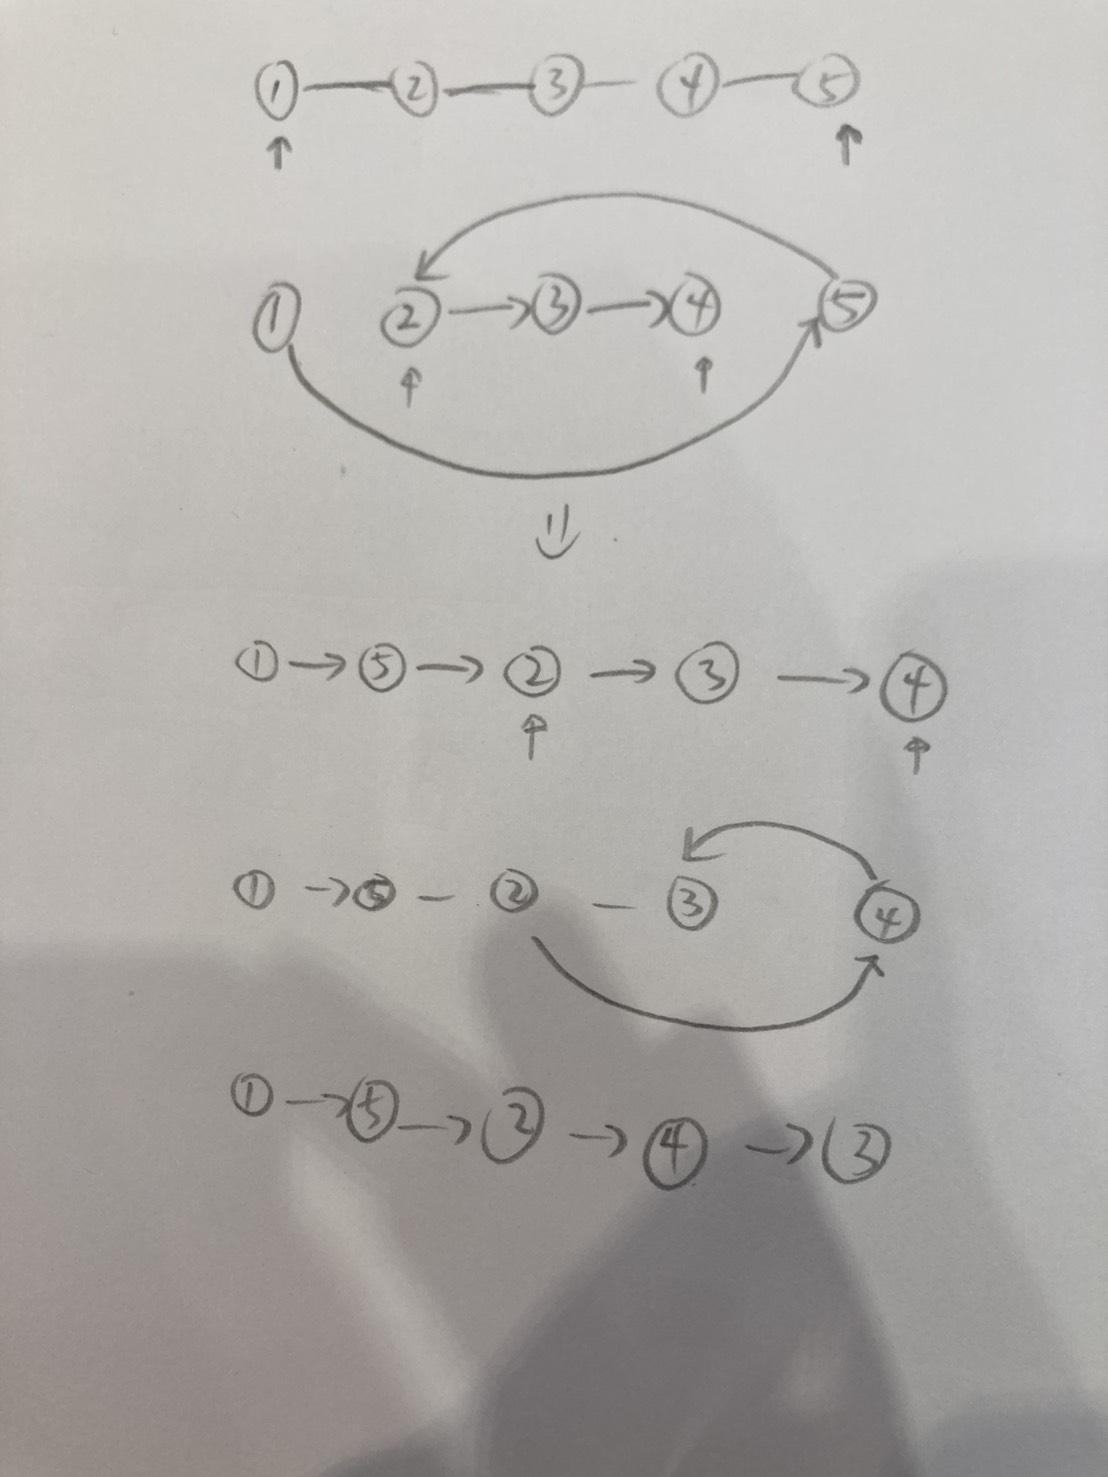 ① — ② — ③ — ④ — ⑤
↑ ↑
① ② → ③ → ④ ⑤
↑ ↑
⇓
① → ⑤ → ② → ③ → ④
↑ ↑
① → ⑤ — ② — ③ ④
① → ⑤ → ② → ④ → ③